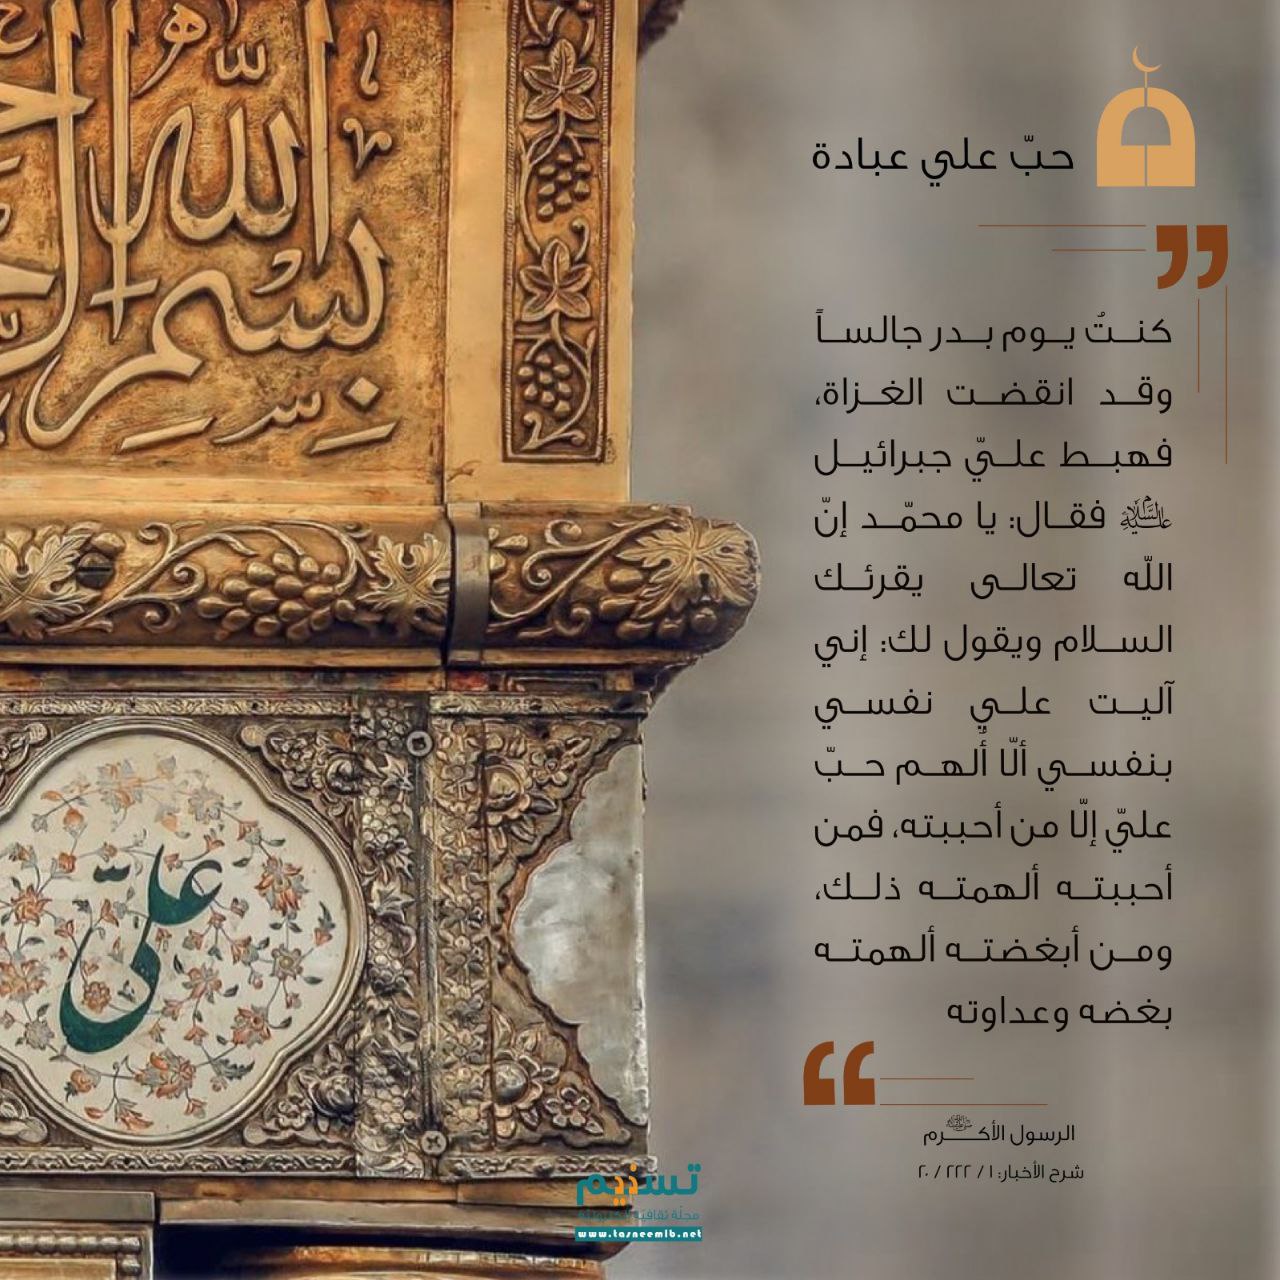 حبّ علي عبادة
كنتُ يوم بدر جالساً
وقد انقضت الغزاة،
فهبط عليّ جبرائيل
عليه السلام فقال: يا محمّد إنّ
اللّه تعالى يقرئك
السلام ويقول لك: إني
آليت علي نفسي
بنفسي ألّا ألهم حبّ
عليّ إلّا من أحببته، فمن
أحببته ألهمته ذلك،
ومن أبغضته ألهمته
بغضه وعداوته
الرسول الأكرم ﷺ
شرح الأخبار: ١ / ٢٢٢ / ٢٠
بسم الله
عليّ
تسنيم
مجلّة ثقافية إلكترونية
www.tasneemlb.net